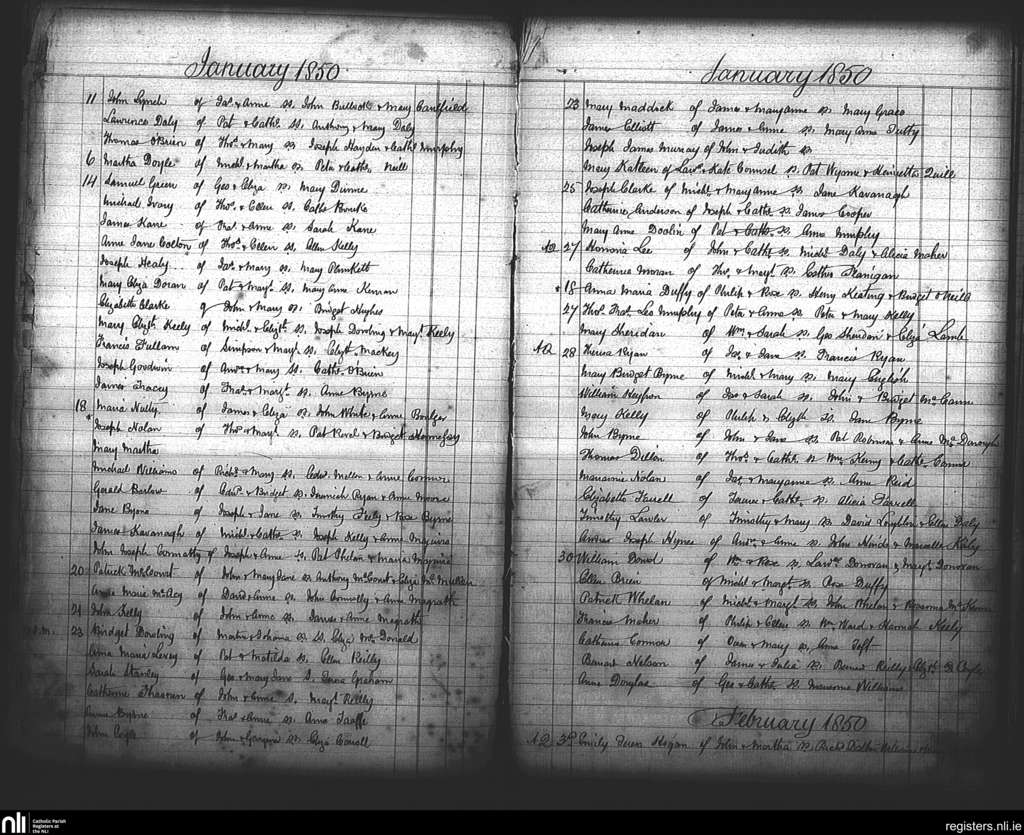 January 1850
11 John Lynch of Jas. & Anne Ss. John Bullock & Mary Caulfield
Lawrence Daly of Pat & Cathe. Ss. Anthony & Mary Daly
Thomas O'Brien of Thos. & Mary Ss Joseph Hayden & Cathe. Murphy
6 Martha Doyle of Michl. & Martha Ss. Peter & Cathe. Neill
14 Samuel Green of Geo & Eliza Ss. Mary Dinne
Michael Ivory of Thos. & Ellen Ss. Cathe Bourke
James Kane of & Anne Ss. Sarah Kane
Anne Jane of Thos. & Ellen Ss. Ellen Kelly
Joseph Healy of Jas. & Mary Ss. Mary Plunkett
Mary Eliza Doran of Pat & Margt. Ss. Mary Anne Kernan
Elizabeth Clarke of John & Mary Ss. Bridget Hughes
Mary Elizth. Keely of Michl. & Elizth. Ss. Joseph Dowling & Margt. Keely
Francis Fullam of Simpson & Margt. Ss. Elizth Mackey
Joseph Goodwin of Anw. & Mary Ss. Cathe. O'Brien
James Tracey of Fras. & Margt. Ss. Anne Byrne
18 Maria Nully of James & Eliza Ss. John White & Anne Boulger
* Joseph Nolan of Thos. & Margt. Ss. Pat & Bridget
Mary Martha
Michael Williams of Richd. & Mary Ss. Edwd. Mellon & Anne Connor
Gerald Barlow of Edwd. & Bridget Ss. Jeremiah Ryan & Anne Moore
Jane Byrne of Joseph & Jane Ss. Timothy Feely & Rose Byrne
James Kavanagh of Michl. & Cathe. Ss. Joseph Kelly & Anne Maguire
John Joseph Connolly of Joseph & Anne Ss. Pat Phelan & Maria Maguire
20 Patrick McCourt of John & Mary Jane Ss. Anthony McCourt & Eliza
Anne Marie of David & Anne Ss. John Connolly & Anne Magrath
21 John Kelly of John & Anne Ss. James & Anne Magrath
23 Bridget Dowling of Martin & Johana Ss. Eliza McDonald
Anna Maria of Pat & Matilda Ss. Ellen Reilly
Sarah Stanley of Geo & Mary Jane S. Emma Graham
Catherine of John & Anne S. Margt. Reilly
Anne Byrne of Fras & Anne Ss. Anne Taaffe
John of John & Ss. Eliza Carroll
January 1850
23 Mary Maddock of James & Maryanne Ss Mary Grace
James Elliott of James & Anne Ss. Mary Anne Tutty
Joseph James Murray of John & Judith Ss
Mary Kathleen of Lawe. & Kate Counsel Ss. Pat & Henrietta Quill
25 Joseph Clarke of Michl. & Mary Anne Ss Jane Kavanagh
Catherine Anderson of Joseph & Cathe. Ss James Cooper
Mary Anne Doolin of Pat & Cathe. Ss. Anne Murphy
AQ 27 Honoria Lee of John & Cathe. Ss Michl. Daly & Alicia Maher
Catherine Moran of Thos. & Margt. Ss. Cathe Flanigan
* 18 Anna Maria Duffy of Philip & Rose Ss. Henry Keating & Bridget O'Neill
27 Thos. Fras. Leo Murphy of Peter & Anne Ss Peter & Mary Kelly
Mary Sheridan of Wm. & Sarah Ss. Geo Sheridan & Eliza Lamb
AQ 28 Teresa Ryan of Jas. & Jane Ss. Francis Ryan
Mary Bridget Byrne of Michl. & Mary Ss. Mary English
William of Jas & Sarah Ss. John & Bridget McCann
Mary Kelly of Philip & Elizth Ss. Jane Byrne
John Byrne of John & Jane Ss. Pat Robinson & Anne McDonough
Thomas Dillon of Thos. & Cathe. Ss Wm. Kenny & Cathe.
Marianne Nolan of Jas. & Maryanne Ss. Anne Reid
Elizabeth Farrell of Terence & Cathe. Ss. Alicia Farrell
Timothy Lawler of Timothy & Mary Ss David & Ellen Daly
Joseph Hynes of Anw. & Anne Ss. John & Marcella
30 William Dowd of Wm & Rose Ss. Lawe. Donovan & Margt. Donovan
Ellen Breen of Michl & Margt. Ss. Rose Duffy
Patrick Whelan of Michl. & Margt. Ss. John Phelan &
Francis Maher of Philip & Ellen Ss. Wm. Ward & Hannah Neely
Catherine Connor of & Mary Ss. Anne
Bernard Nelson of James & Julia Ss. Reilly
Anne Douglas of Geo & Cathe. Ss. Marianne Williams
February 1850
AQ 3rd Emily Teresa Hogan of John & Martha Ss.
nli
Catholic Parish
Registers at
the NLI
registers.nli.ie